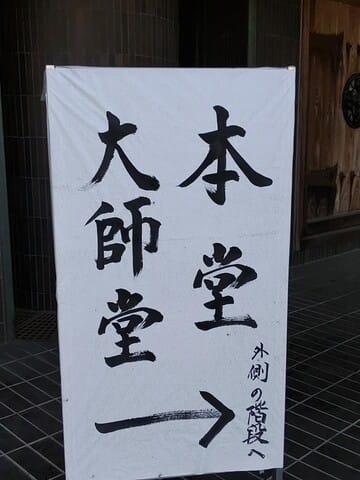 本堂
大師堂
→
外側の階段へ